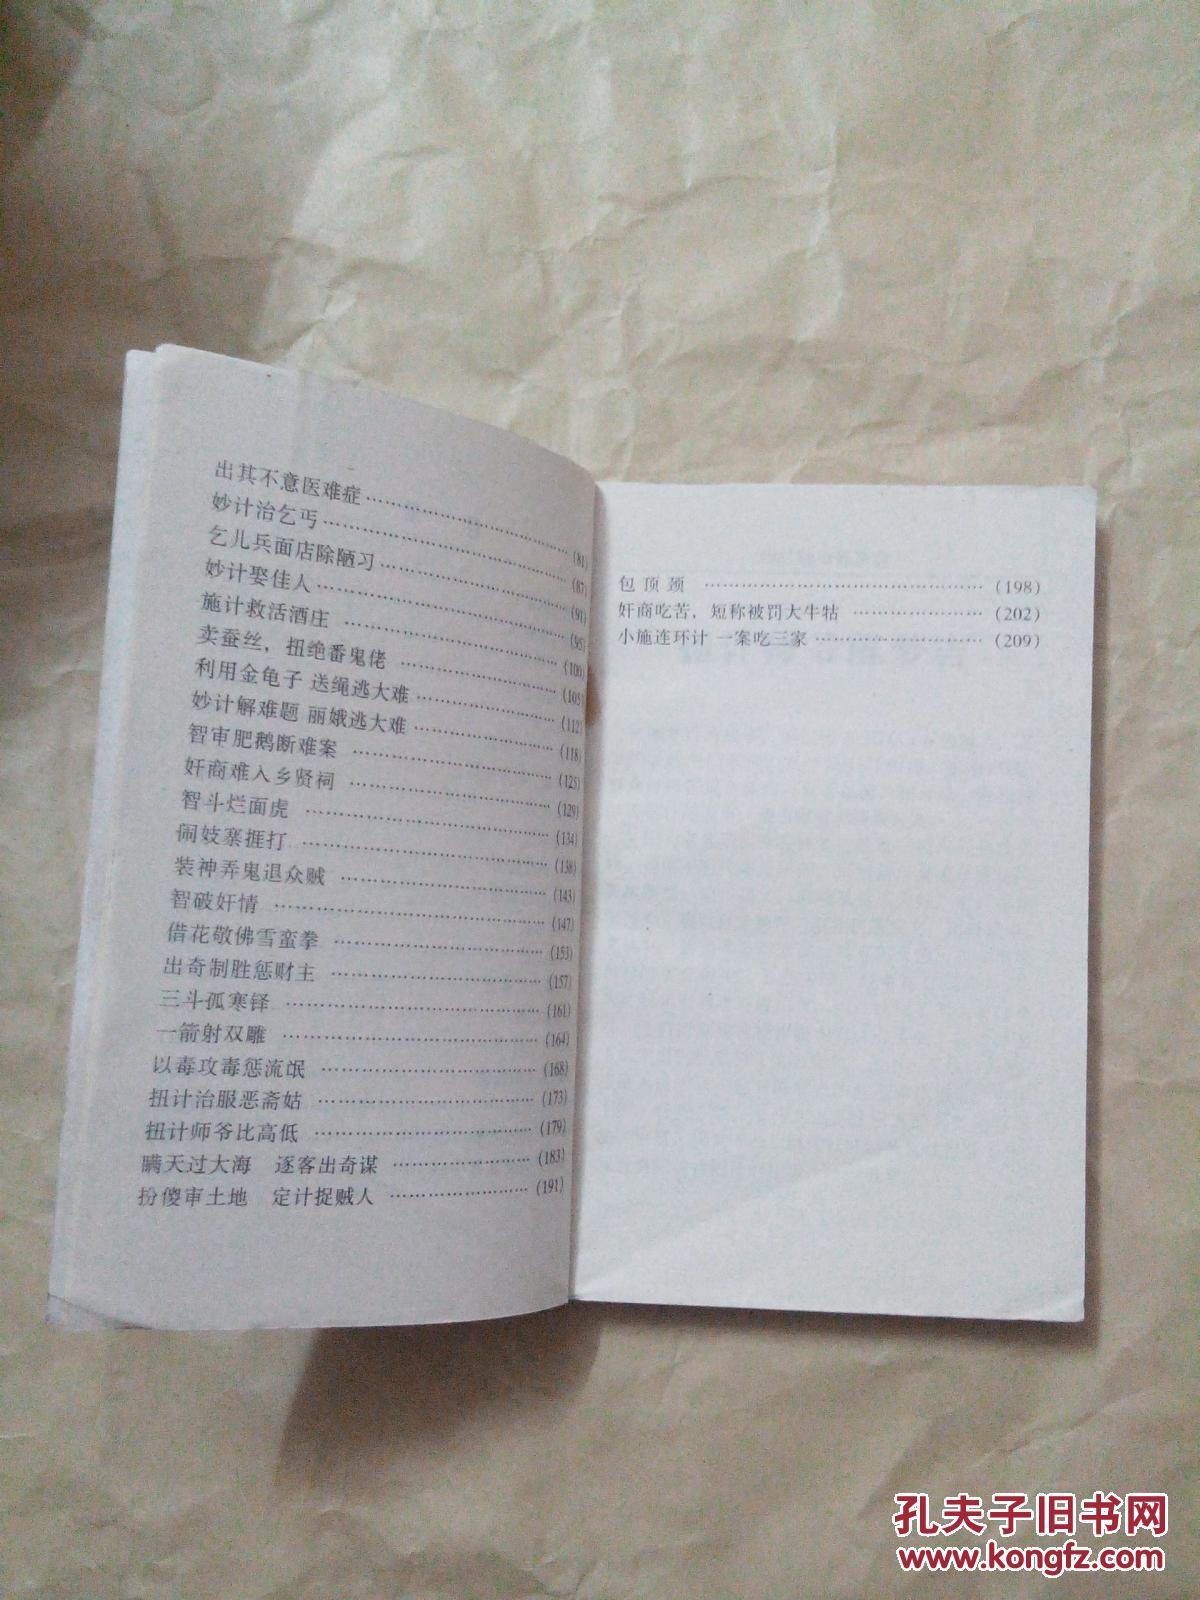 出其不意医难症…………………(81)
妙计治乞丐…………………(87)
乞儿兵面店除陋习…………………(91)
妙计娶佳人…………………(95)
施计救活酒庄…………………(100)
卖蚕丝，扭绝番鬼佬…………………(105)
利用金龟子 送绳逃大难…………………(112)
妙计解难题 丽娥逃大难…………………(118)
智审肥鹅断难案…………………(125)
奸商难入乡贤祠…………………(129)
智斗烂面虎…………………(134)
闹妓寨捱打…………………(138)
装神弄鬼退众贼…………………(143)
智破奸情…………………(147)
借花敬佛雪蛮拳…………………(153)
出奇制胜惩财主…………………(157)
三斗孤寒铎…………………(161)
一箭射双雕…………………(164)
以毒攻毒惩流氓…………………(168)
扭计治服恶斋姑…………………(173)
扭计师爷比高低…………………(179)
瞒天过大海　逐客出奇谋…………………(183)
扮傻审土地　定计捉贼人…………………(191)
包顶颈…………………(198)
奸商吃苦，短称被罚大牛牯…………………(202)
小施连环计 一案吃三家…………………(209)
孔夫子旧书网
www.kongfz.com